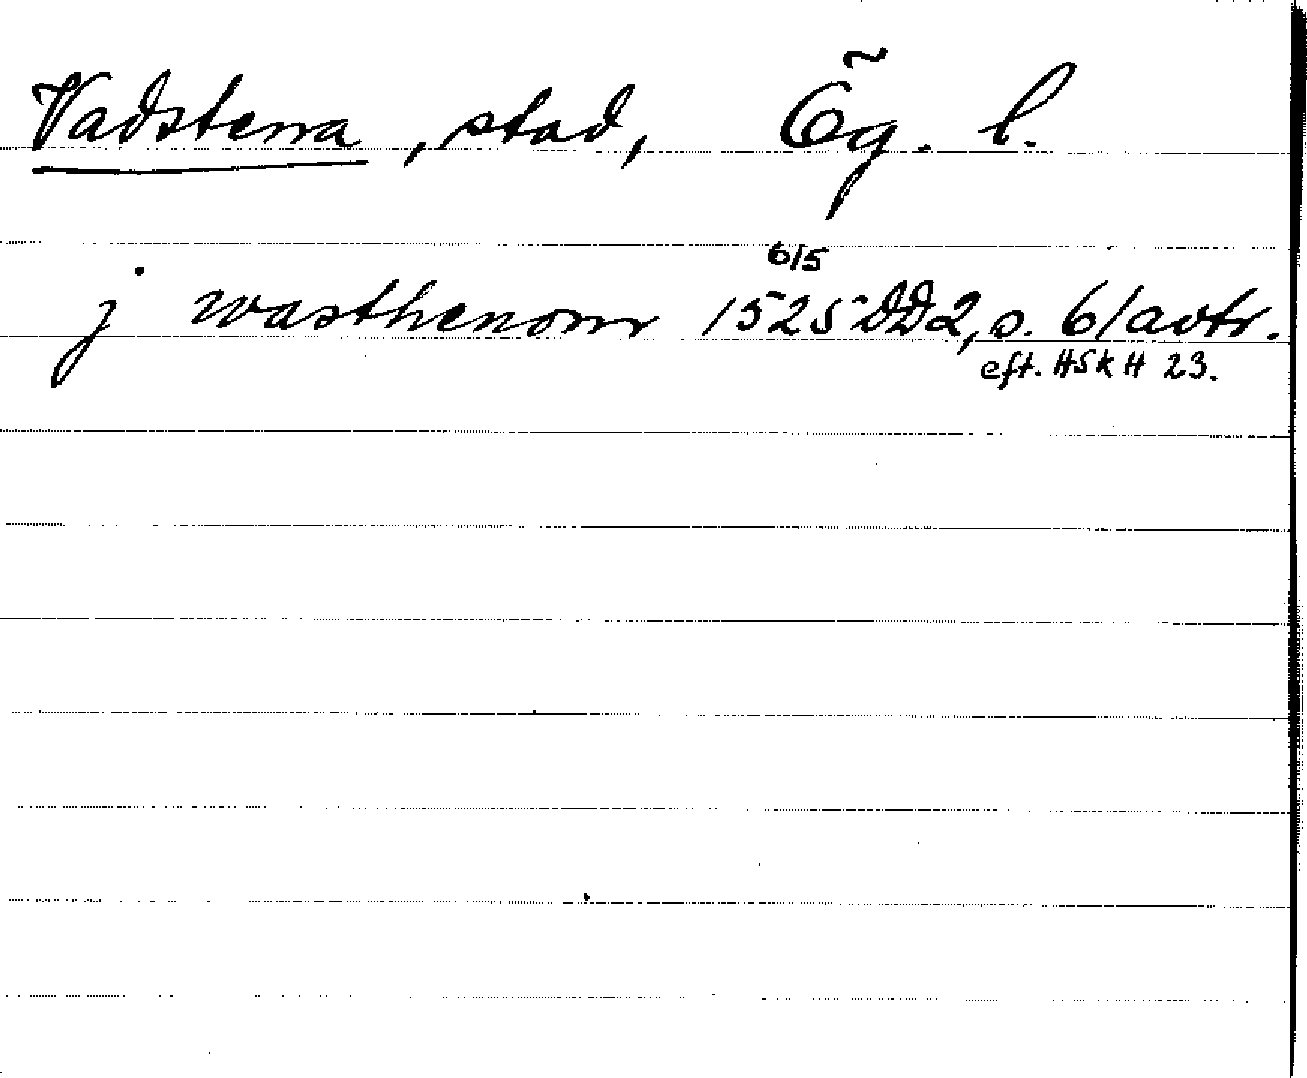 Vadstena, stad, Ög. l.
6/5
j wasthenom 1525 DD2, s. 6/avtr.
eft. HSKH 23.